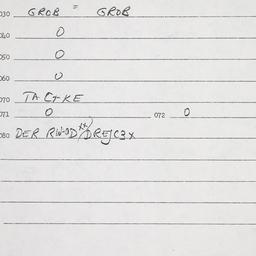 030 GROB = GROB
040 0
050 0
060 0
070 TACKE
071 0 072 0
080 DER